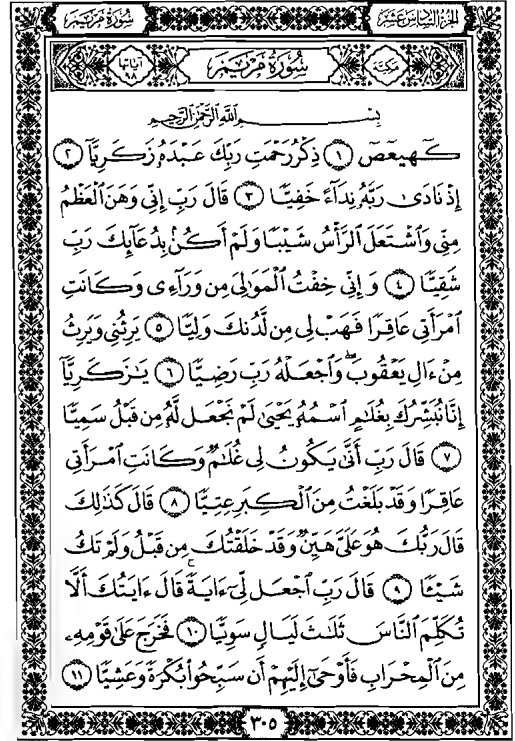 سُورَةُ مَرْيَمَ
الجُزْءُ السَّادِسَ عَشَرَ
آياتها ٩٨
سُورَةُ مَرْيَمَ
مكيّة
بِسْمِ ٱللَّهِ ٱلرَّحْمَٰنِ ٱلرَّحِيمِ
كٓهيعٓصٓ ١ ذِكْرُ رَحْمَتِ رَبِّكَ عَبْدَهُۥ زَكَرِيَّآ ٢
إِذْ نَادَىٰ رَبَّهُۥ نِدَآءً خَفِيًّا ٣ قَالَ رَبِّ إِنِّى وَهَنَ ٱلْعَظْمُ
مِنِّى وَٱشْتَعَلَ ٱلرَّأْسُ شَيْبًا وَلَمْ أَكُنۢ بِدُعَآئِكَ رَبِّ
شَقِيًّا ٤ وَإِنِّى خِفْتُ ٱلْمَوَٰلِىَ مِن وَرَآءِى وَكَانَتِ
ٱمْرَأَتِى عَاقِرًا فَهَبْ لِى مِن لَّدُنكَ وَلِيًّا ٥ يَرِثُنِى وَيَرِثُ
مِنْ ءَالِ يَعْقُوبَ ۖ وَٱجْعَلْهُ رَبِّ رَضِيًّا ٦ يَٰزَكَرِيَّآ
إِنَّا نُبَشِّرُكَ بِغُلَٰمٍ ٱسْمُهُۥ يَحْيَىٰ لَمْ نَجْعَل لَّهُۥ مِن قَبْلُ سَمِيًّا
٧ قَالَ رَبِّ أَنَّىٰ يَكُونُ لِى غُلَٰمٌ وَكَانَتِ ٱمْرَأَتِى
عَاقِرًا وَقَدْ بَلَغْتُ مِنَ ٱلْكِبَرِ عِتِيًّا ٨ قَالَ كَذَٰلِكَ
قَالَ رَبُّكَ هُوَ عَلَىَّ هَيِّنٌ وَقَدْ خَلَقْتُكَ مِن قَبْلُ وَلَمْ تَكُ
شَيْـًٔا ٩ قَالَ رَبِّ ٱجْعَل لِّىٓ ءَايَةً ۚ قَالَ ءَايَتُكَ أَلَّا
تُكَلِّمَ ٱلنَّاسَ ثَلَٰثَ لَيَالٍ سَوِيًّا ١٠ فَخَرَجَ عَلَىٰ قَوْمِهِۦ
مِنَ ٱلْمِحْرَابِ فَأَوْحَىٰٓ إِلَيْهِمْ أَن سَبِّحُوا۟ بُكْرَةً وَعَشِيًّا ١١
٣٠٥